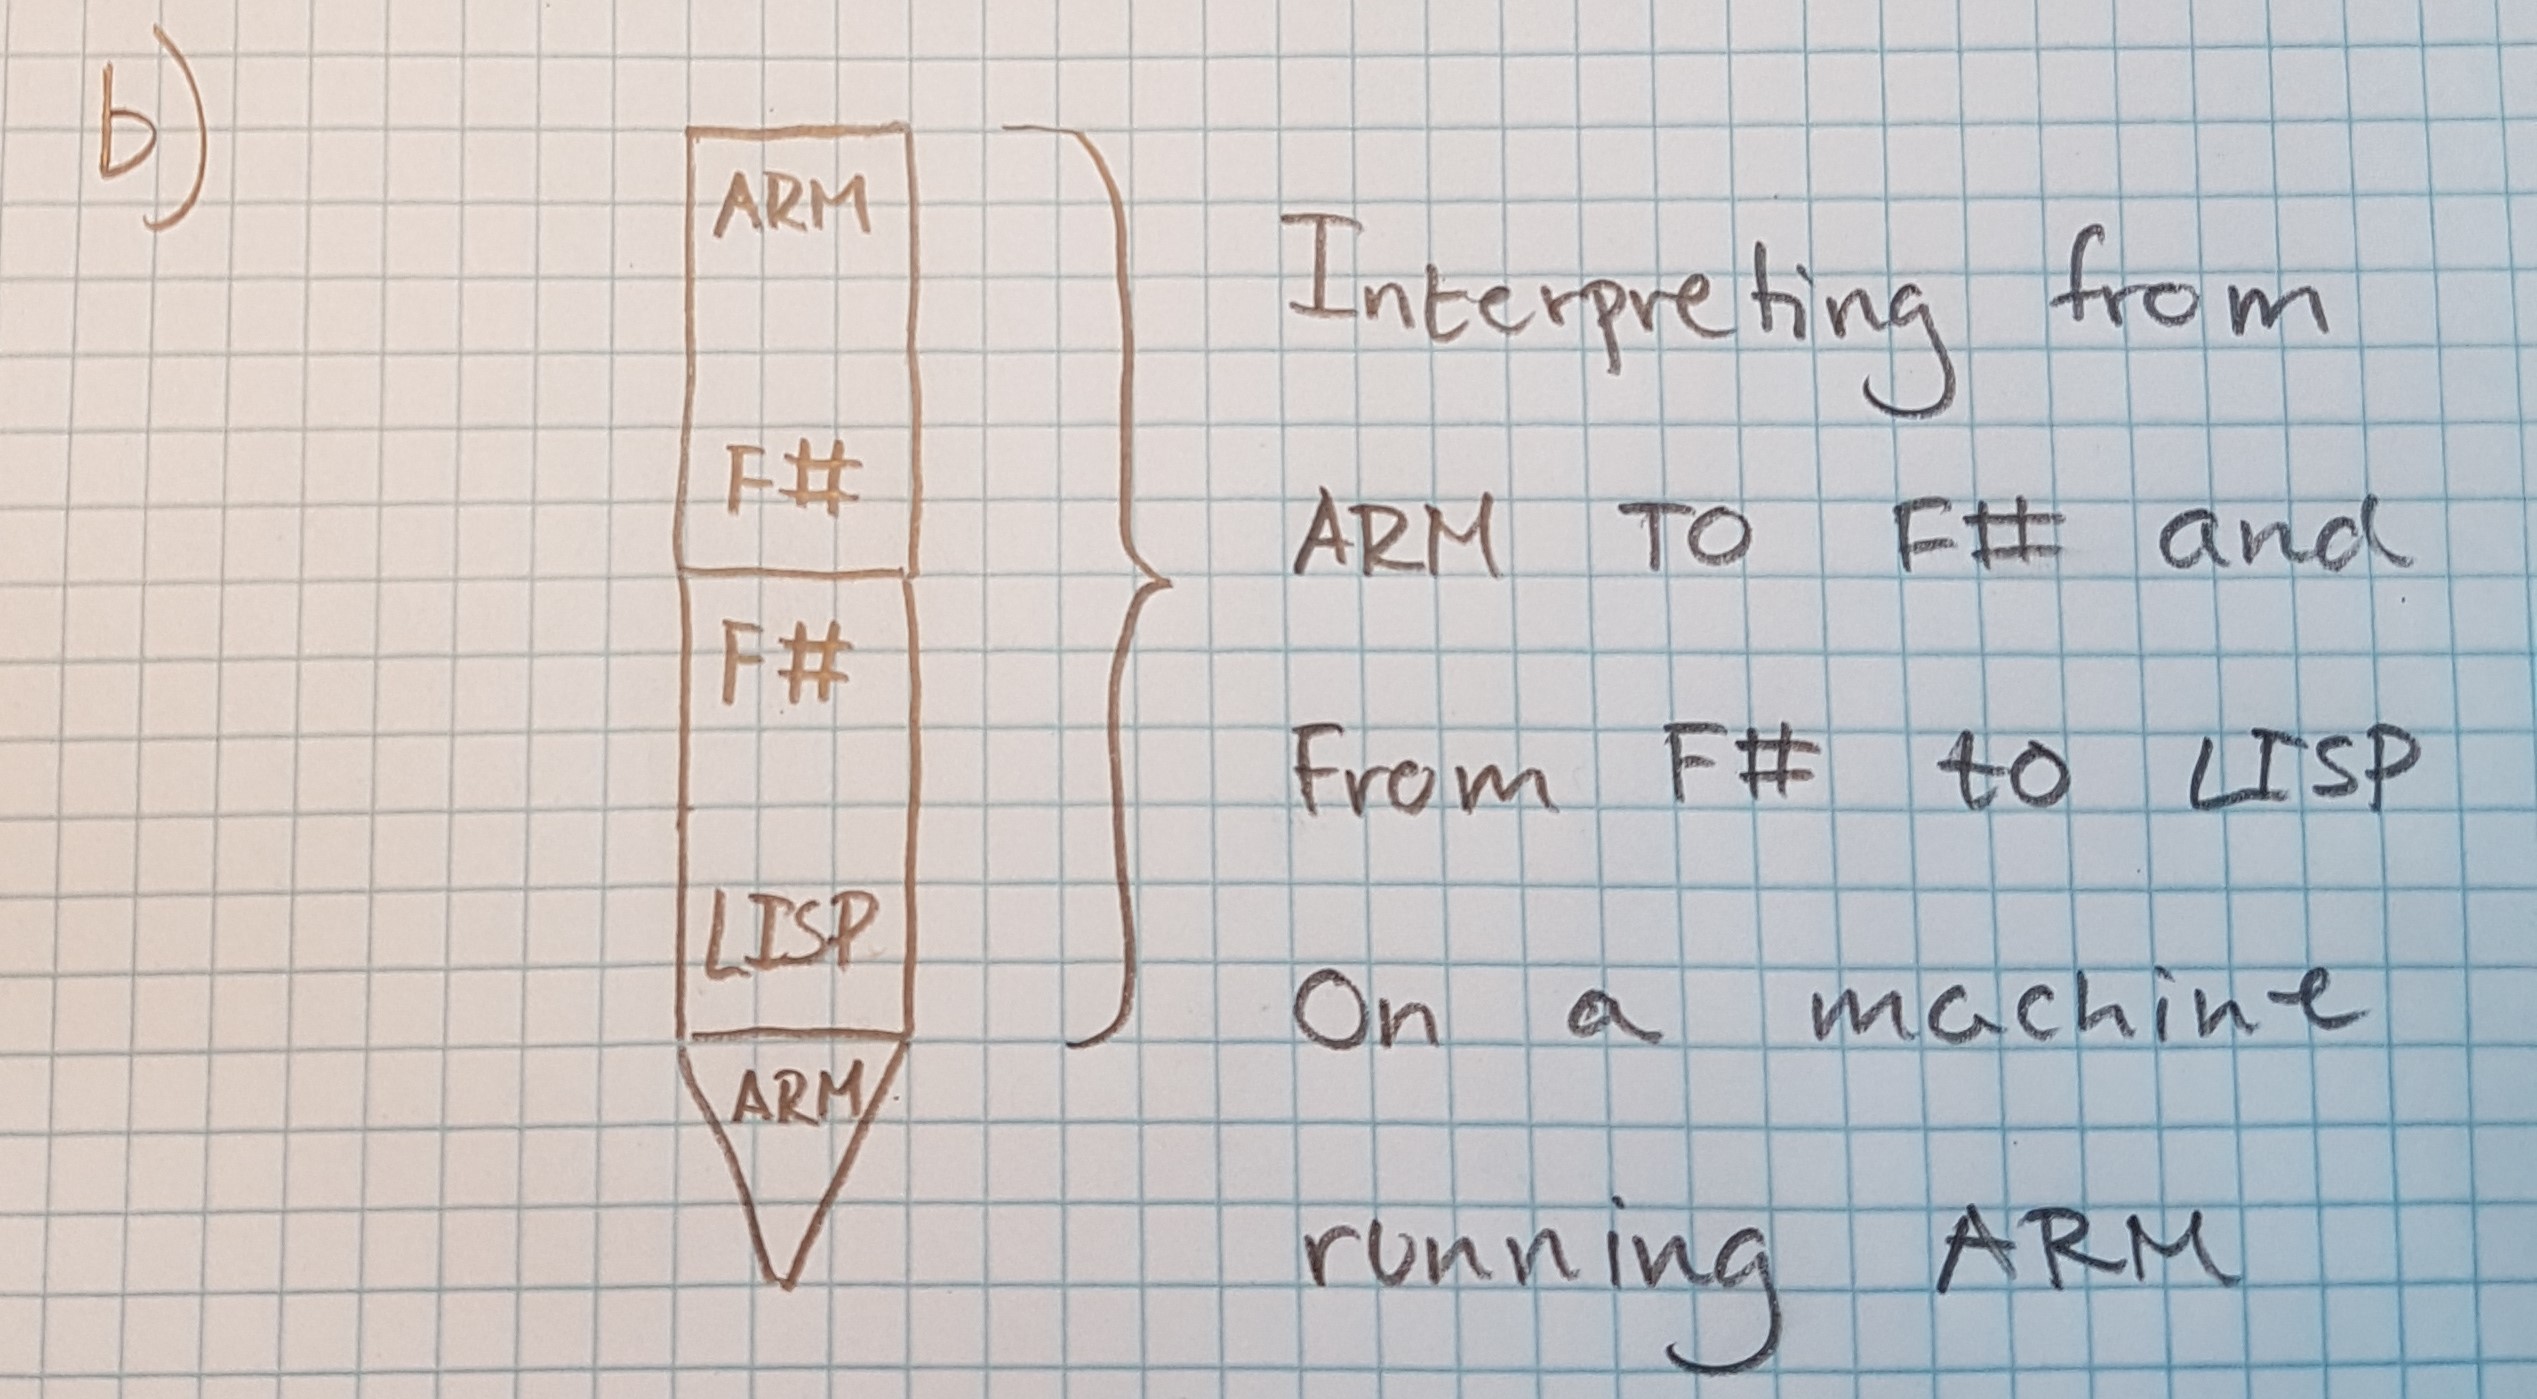 b)
ARM
F#
F#
LISP
ARM
Interpreting from
ARM TO F# and
From F# to LISP
On a machine
running ARM